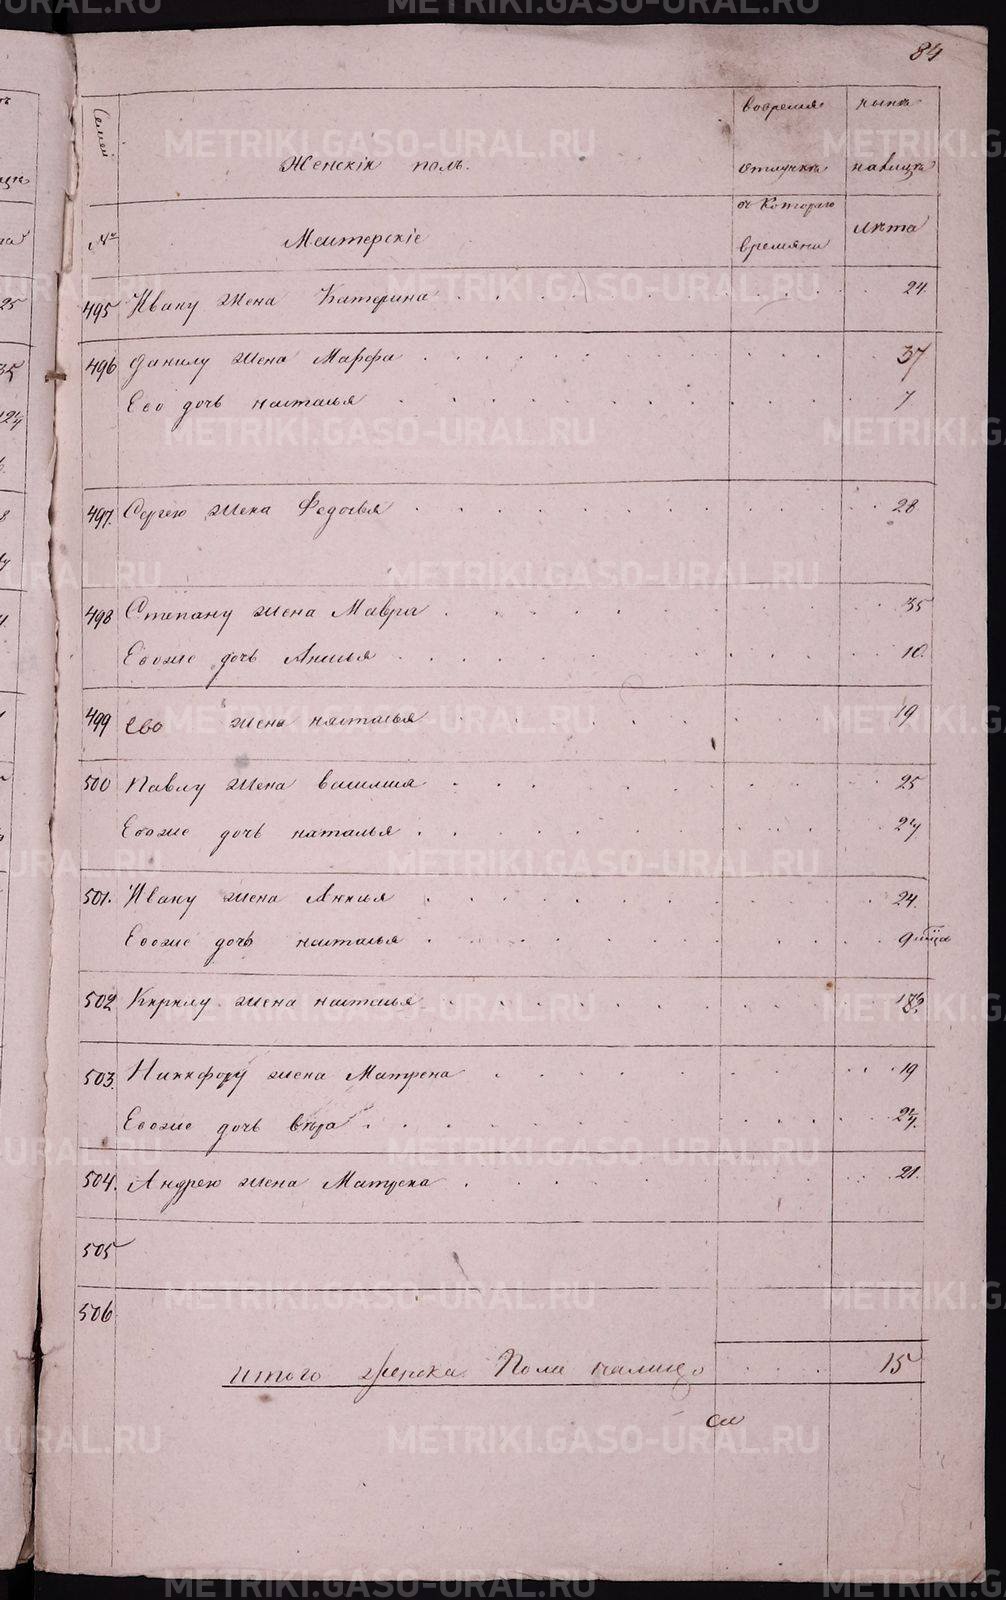 84
Семей
Женскiй полъ.
вовремян: отлучкѣ
нынѣ налицѣ
№
Мастерскiе
съ Котораго времяни
лѣта
495 Ивану жена Катерина 24
496 Данилу жена Марфа 37
Ево дочь наталья 7
497. Сергею жена Федосья 28
498 Степану жена Мавра 35
Евоже дочь Анисья 10.
499 Ево жена наталья 19
500 Павлу жена василиса 25
Евоже дочь наталья
501. Ивану жена Анисья 24.
Евоже дочь наталья
502 Кирилу жена наталья
503. Никифору жена Матрена 19
Евоже дочь вѣра
504. Андрею жена Матрена 21.
505
506
итого женска Пола налицо 15